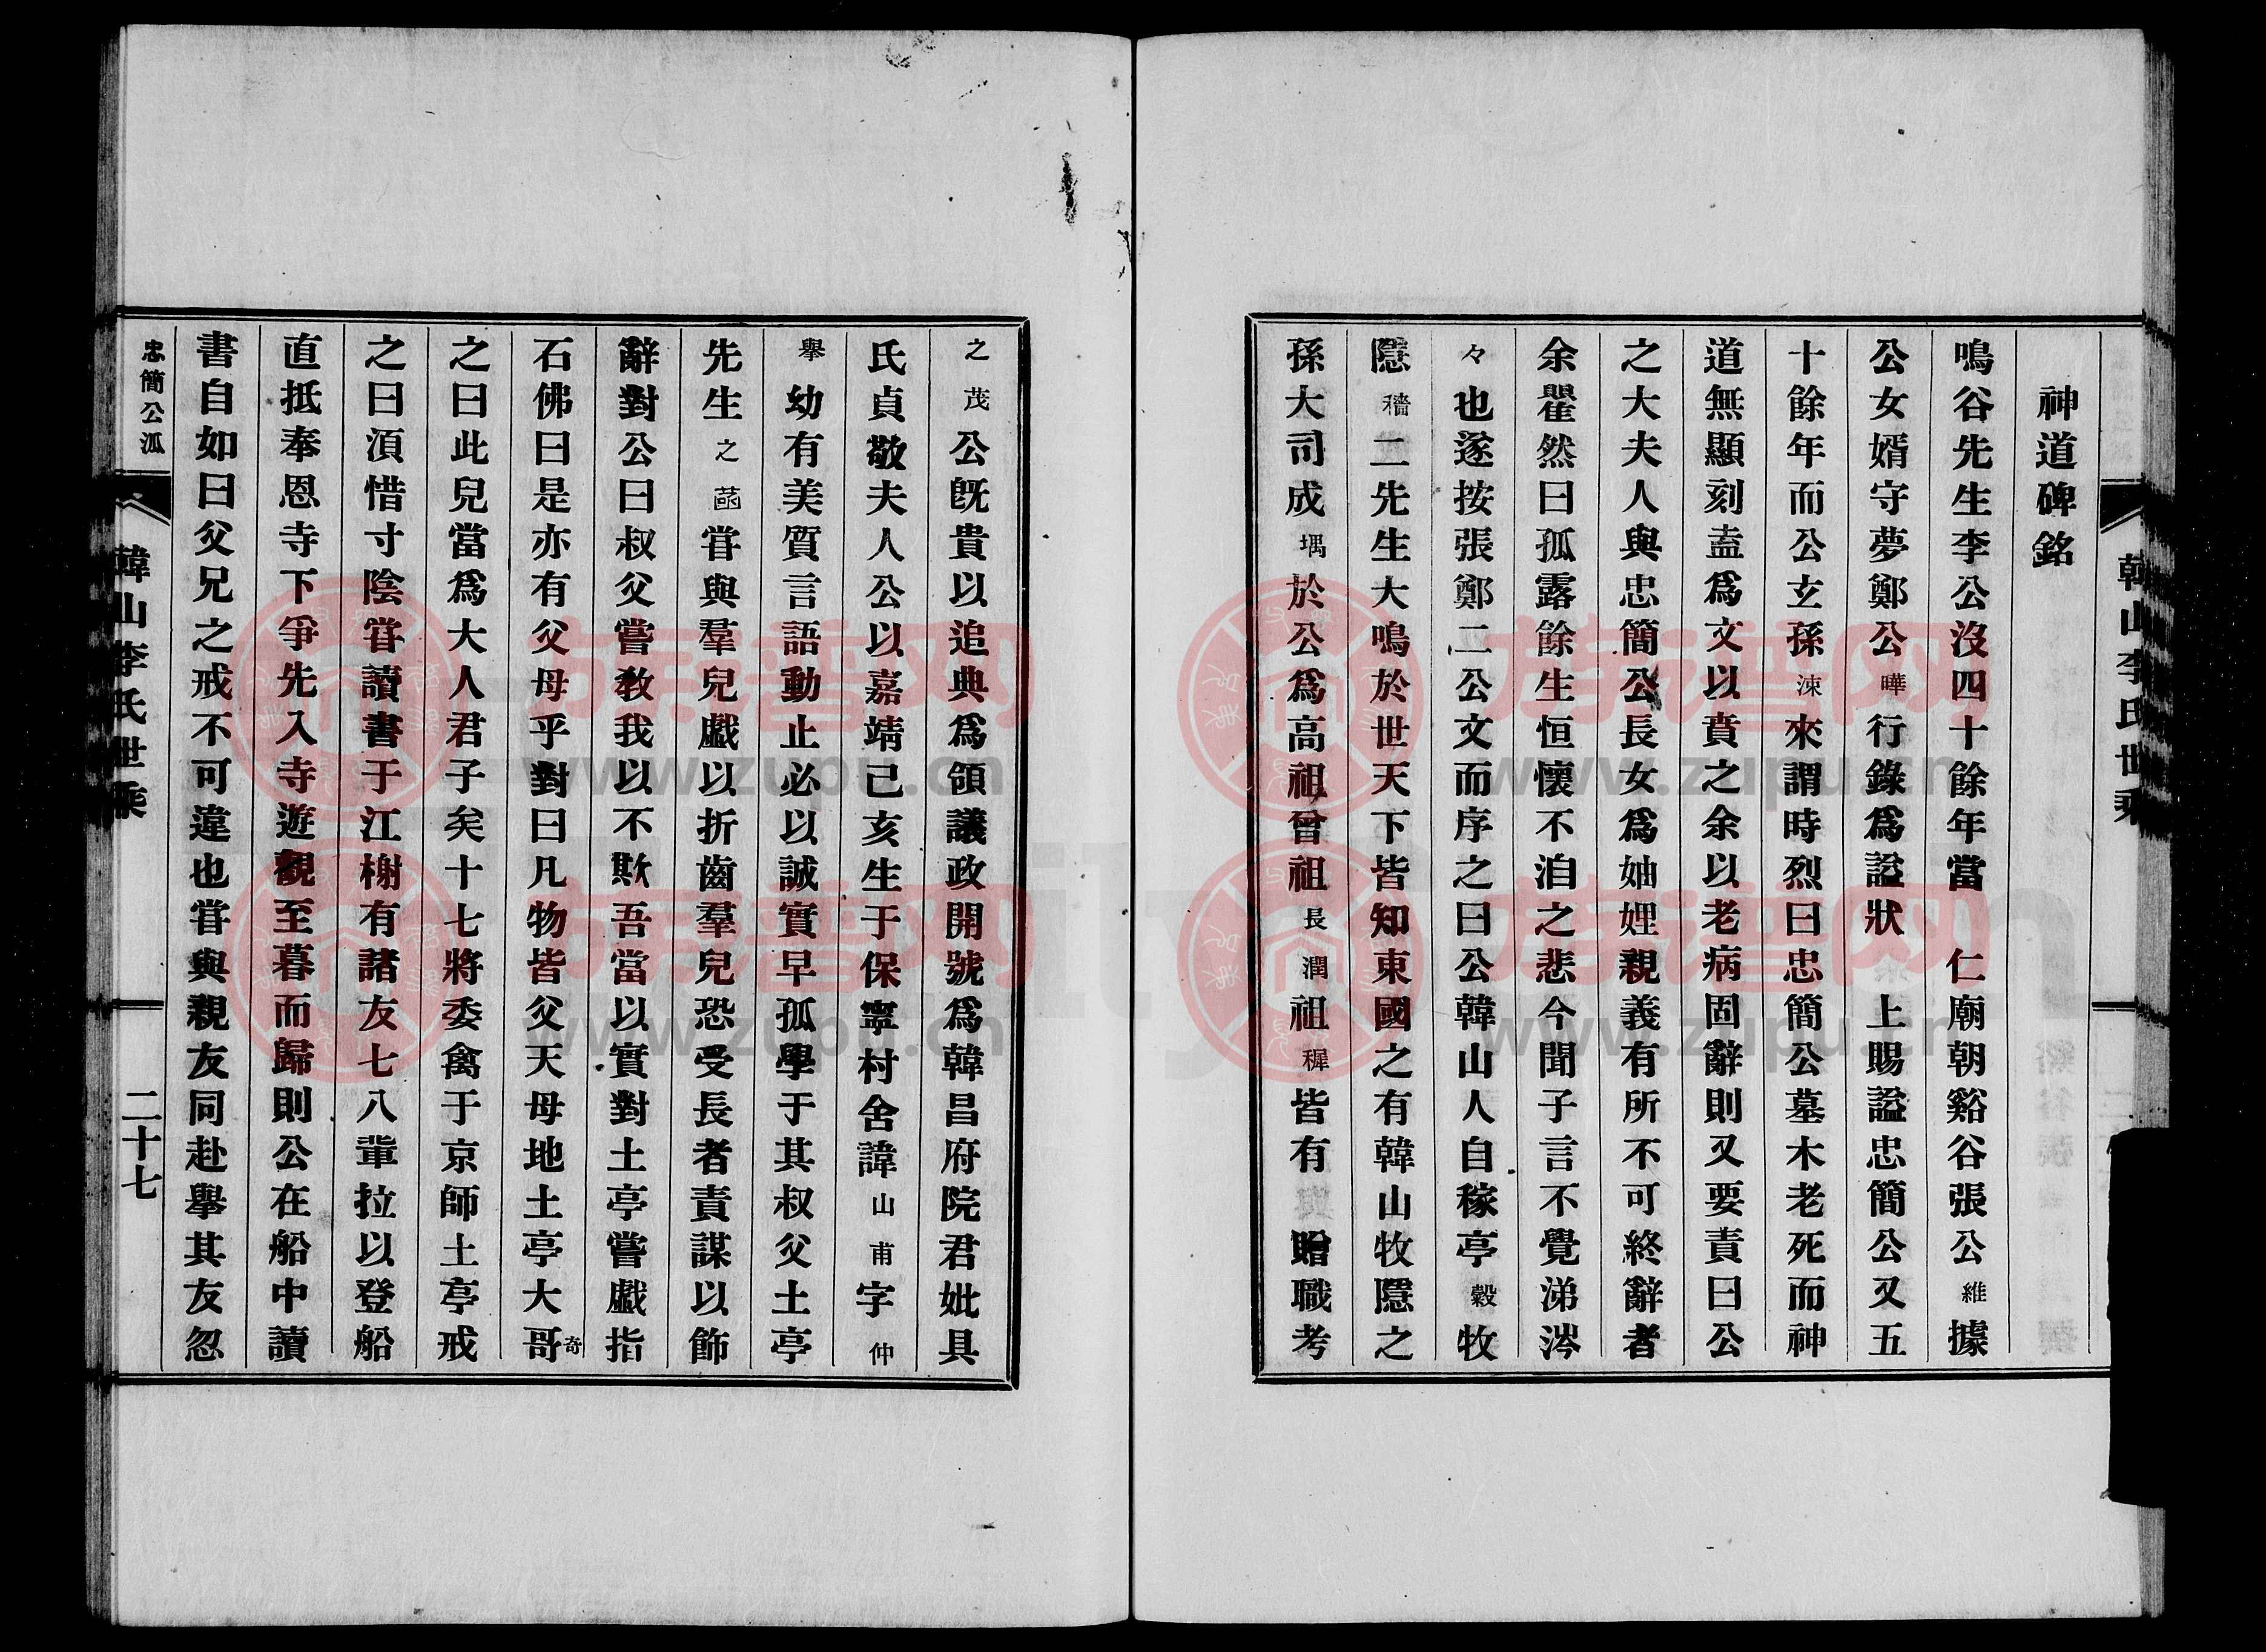 韓山李氏世乘
神道碑銘
鳴谷先生李公沒四十餘年當 仁廟朝谿谷張公維據
公女婿守夢鄭公曄行錄爲謚狀 上賜謚忠簡公又五
十餘年而公玄孫涑來謂時烈曰忠簡公墓木老死而神
道無顯刻盍爲文以賁之余以老病固辭則又要責曰公
之大夫人與忠簡公長女爲妯娌親義有所不可終辭者
余瞿然曰孤露餘生恒懷不洎之悲今聞子言不覺涕涔
々也遂按張鄭二公文而序之曰公韓山人自稼亭穀牧
隱穡二先生大鳴於世天下皆知東國之有韓山牧隱之
孫大司成堣於公爲高祖曾祖長潤祖穉皆有 贈職考
之茂公旣貴以追典爲領議政開號爲韓昌府院君妣具
氏貞敬夫人公以嘉靖己亥生于保寧村舍諱山甫字仲
擧幼有美質言語動止必以誠實早孤學于其叔父土亭
先生之菡甞與羣兒戱以折齒羣兒恐受長者責謀以飾
辭對公曰叔父嘗敎我以不欺吾當以實對土亭嘗戱指
石佛曰是亦有父母乎對曰凡物皆父天母地土亭大奇
之曰此兒當爲大人君子矣十七將委禽于京師土亭戒
之曰湏惜寸陰甞讀書于江榭有諸友七八軰拉以登船
直抵奉恩寺下爭先入寺遊觀至暮而歸則公在船中讀
書自如曰父兄之戒不可違也甞與親友同赴擧其友忽
忠簡公泒
韓山李氏世乘
二十七